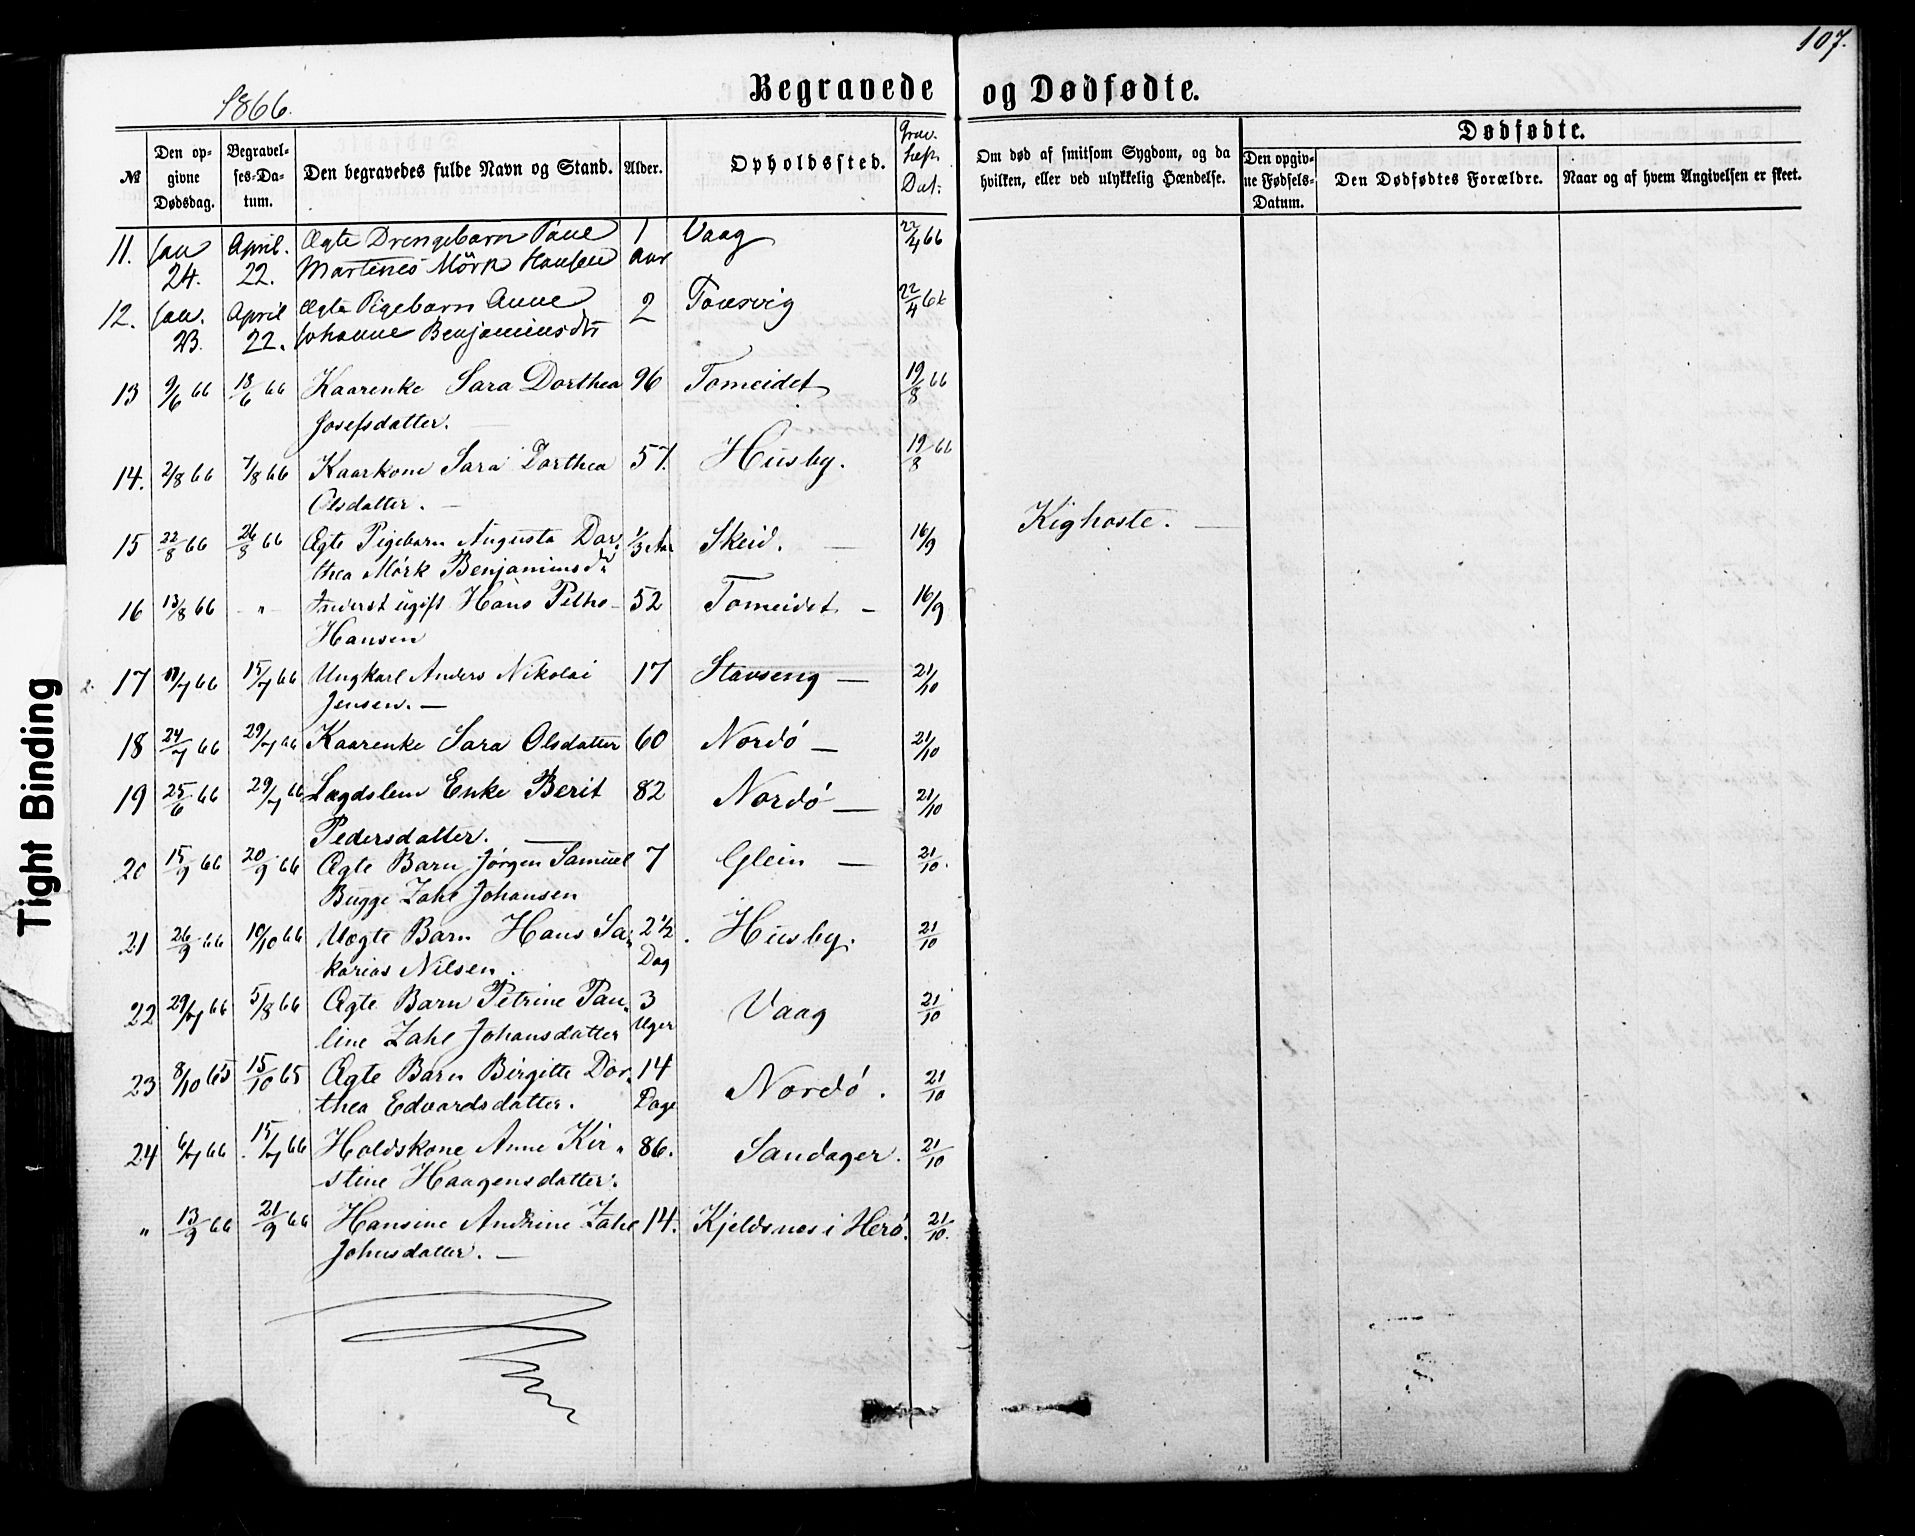 107.
1866.
Begravede og Dødfødte.
№
Den opgivne Dødsdag.
Begravelses-Datum.
Den begravedes fulde Navn og Stand.
Alder.
Opholdssted.
Dat:
Om død af smitsom Sygdom, og da hvilken, eller ved ulykkelig Hændelse.
Dødfødte.
Den opgivne Fødsels-Datum.
Den Dødfødtes Forældre.
Naar og af hvem Angivelsen er skeet.
11. Jan April. Ægte Drengebarn Paul 1 Vaag 22/4 66
24. 22. Martines Mörk Hansen Aar
12. Jan. April Ægte Pigebarn Anne 2 Tousvig 22/4 66
23. 22. Johanne Benjaminsdtr
13 9/6 66 18/6 66 Kaarenke Sara Dorthea 96 Tomeidet 19/8 66
Josefsdatter.
14. 2/8 66 7/8 66 Kaarkone Sara Dorthea 57. Husby. 19/8 66
Olsdatter. —
15 22/8 66 26/8 66 Ægte Pigebarn Augusta Dor- 1/3 Aar Skeid. — 16/9 Kighoste. —
thea Mörk Benjaminsdr
16 13/8 66 - " - Inderst ugift Hans Peth- 52 Tomeidet — 16/9
Hansen
17 11/7 66 15/7 66 Ungkarl Anders Nikolai 17 Stavseng — 21/10
Jensen. —
18 24/7 66 29/7 66 Kaarenke Sara Olsdatter 60 Nordö — 21/10
19 25/6 66 29/7 66 Lægdslem Enke Berit 82 Nordö — 21/10
Pedersdatter. —
20 15/9 66 20/9 66 Ægte Barn Jørgen Samuel 7 Glein — 21/10.
Bugge Zahl Johansen
21 26/9 66 10/10 66 Uægte Barn Hans Sa- 2 1/2 Husby. 21/10
karias Nilsen. Dag
22 29/7 66 5/8 66 Ægte Barn Petrine Pau- 3 Vaag 21/10
line Zahl Johansdatter Uger
23 8/10 65 15/10 65 Ægte Barn Birgitte Dor- 14 Nordö. 21/10
thea Edvardsdatter. Dage
24 6/7 66 15/7 66 Holdskone Anne Kir- 86. Sandager. 21/10
stine Haagensdatter.
" 13/9 66 21/9 66 Hansine Andrine Zahl 14. Kjeldsnes i Herö. 21/10.
Johnsdatter. —
Tight Binding